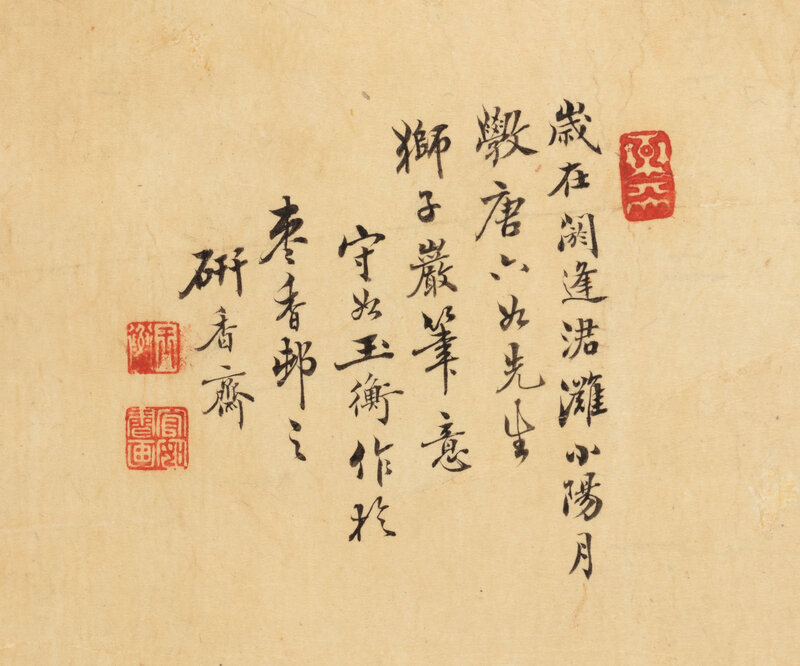 歲在閼逢涒灘小陽月
斆唐六如先生
獅子巖筆意
守如玉衡作於
棗香邨之
研香齋